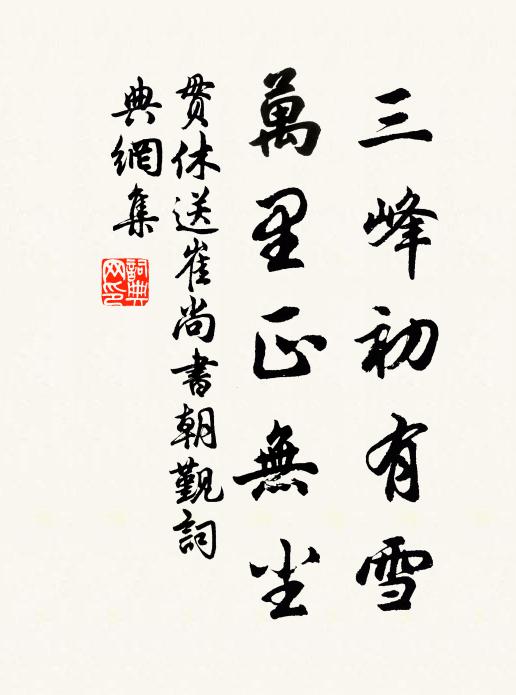 三峰初有雪
萬里正無尘
贯休送崔尚書朝覲詞
典網集
詞典
网印